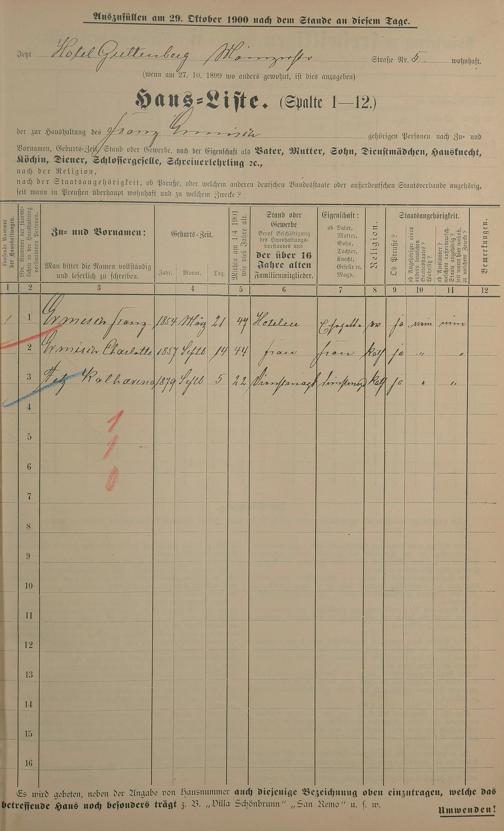 Auszufüllen am 29. Oktober 1900 nach dem Stande an diesem Tage.
Jetzt Hotel Guttenberg Straße Nr. 5 wohnhaft.
(wenn am 27. 10. 1899 wo anders gewohnt, ist dies anzugeben)
Haus-Liste. (Spalte 1—12.)
der zur Haushaltung des Franz Ermisch gehörigen Personen nach Zu- und
Vornamen, Geburts-Zeit, Stand oder Gewerbe, nach der Eigenschaft als Vater, Mutter, Sohn, Dienstmädchen, Hausknecht,
Köchin, Diener, Schlossergeselle, Schreinerlehrling ꝛc.,
nach der Religion,
nach der Staatsangehörigkeit, ob Preuße, oder welchem anderen deutschen Bundesstaate oder außerdeutschen Staatsverbande angehörig,
seit wann in Preußen überhaupt wohnhaft und zu welchem Zwecke?
Zu- und Vornamen:
Man bittet die Namen vollständig
und leserlich zu schreiben.
Geburts-Zeit.
Jahr. Monat. Tag.
Mithin am 1/4 1901 wie viel Jahre alt.
Stand oder
Gewerbe
der über 16
Jahre alten
Familienmitglieder.
Eigenschaft:
ob Vater,
Mutter,
Sohn,
Tochter,
Knecht,
Geselle rc.
Magd.
Religion.
Staatsangehörigkeit.
Ob Preuße?
Bemerkungen.
1 2 3 4 5 6 7 8 9 10 11 12
1 Ermisch Franz 1854 März 21 47 ja
2 Ermisch Charlotte 1857 Sept 14 44 frau frau kath ja " "
3 Katharina 1879 Sept 5 22 Dienstmagd kath ja " "
4
5
6
7
8
9
10
11
12
13
14
15
16
1
1
0
Es wird gebeten, neben der Angabe von Hausnummer auch diejenige Bezeichnung oben einzutragen, welche das
betreffende Haus noch besonders trägt z. B. „Villa Schönbrunn" „San Remo" u. s. w.
Umwenden!